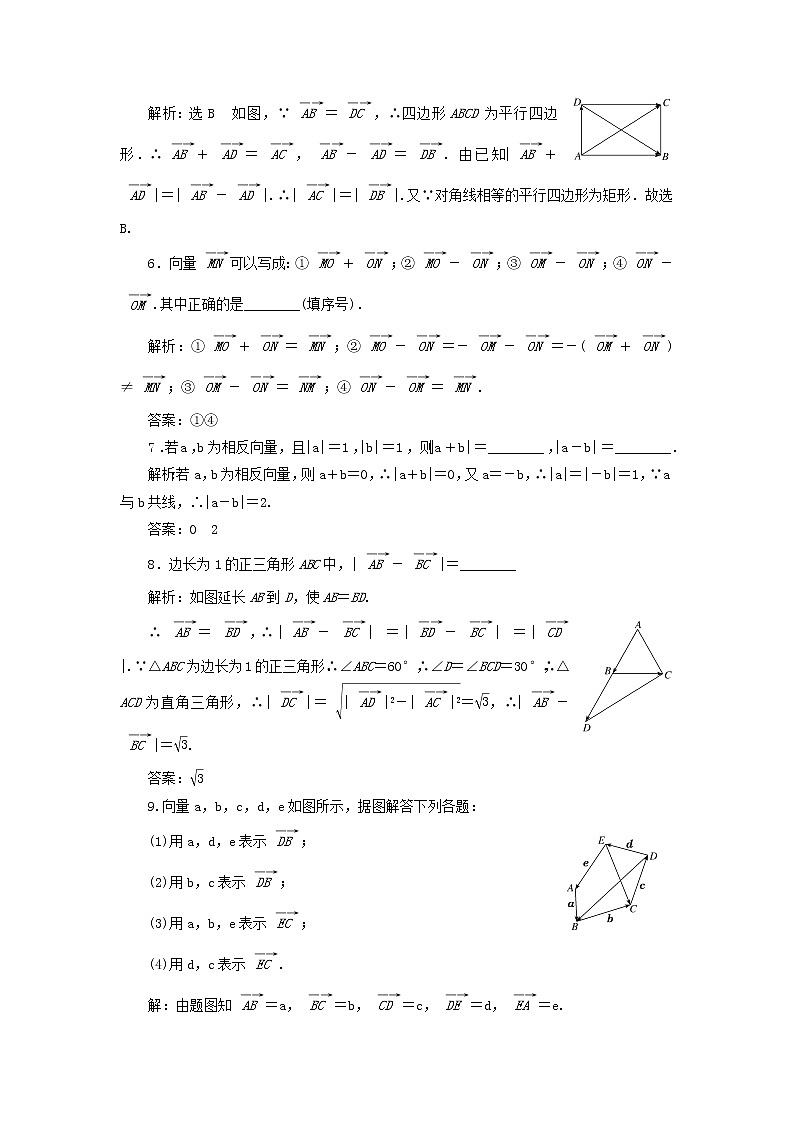 解析:选 B 如图,∵ AB→= DC→,∴四边形 ABCD 为平行四边
形.∴ AB→+ AD→= AC→, AB→- AD→= DB→.由已知| AB→+
AD→|=| AB→- AD→|.∴| AC→|=| DB→|.又∵对角线相等的平行四边形为矩形.故选
B.
D C
A B
6.向量 MN→可以写成:① MO→+ ON→;② MO→- ON→;③ OM→- ON→;④ ON→-
OM→.其中正确的是________(填序号).
解析:① MO→+ ON→= MN→;② MO→- ON→=- OM→- ON→=-( OM→+ ON→)
≠ MN→;③ OM→- ON→= NM→;④ ON→- OM→= MN→.
答案:①④
7.若a,b为相反向量,且|a|=1,|b|=1,则|a+b|=________,|a-b|=________.
解析:若 a,b为相反向量,则 a+b=0,∴|a+b|=0,又 a=-b,∴|a|=|-b|=1,∵a
与 b 共线,∴|a-b|=2.
答案:0 2
8.边长为 1 的正三角形 ABC 中,| AB→- BC→|=________
解析:如图延长 AB 到 D,使 AB=BD.
∴ AB→= BD→,∴| AB→- BC→| =| BD→- BC→| =| CD→
|.∵△ABC 为边长为 1 的正三角形∴∠ABC=60°,∴∠D=∠BCD=30°,∴△
ACD 为直角三角形,∴| DC→|= √(| AD→|²-| AC→|²)=√3,∴| AB→-
BC→|=√3.
A
B C
D
答案:√3
9.向量 a,b,c,d,e 如图所示,据图解答下列各题:
(1)用 a,d,e 表示 DB→;
(2)用 b,c 表示 DB→;
(3)用 a,b,e 表示 EC→;
(4)用 d,c 表示 EC→.
E d D
e
A c
a C
B b
解:由题图知 AB→=a, BC→=b, CD→=c, DE→=d, EA→=e.